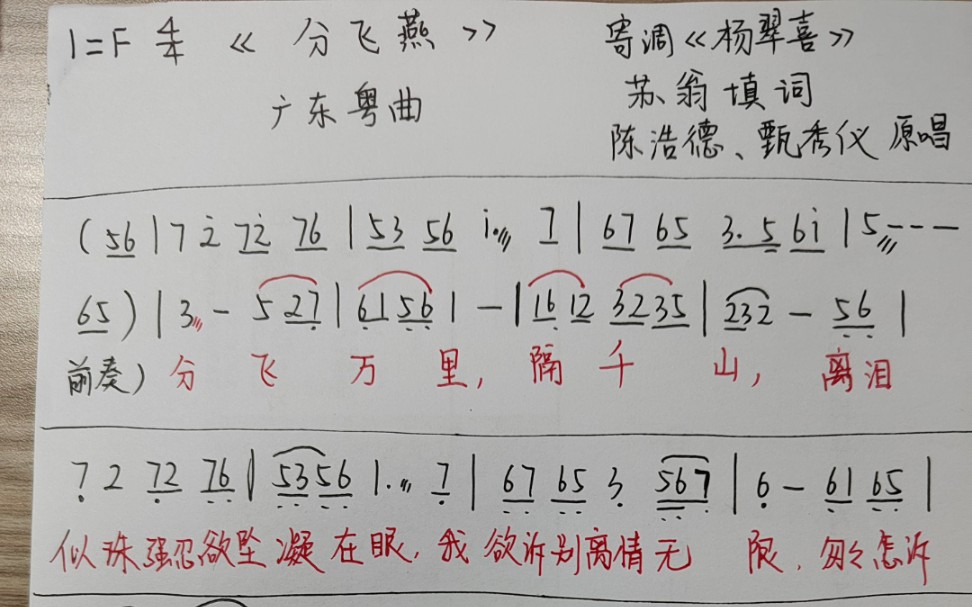 1=F 4/4 《 分飞燕 》 寄调《杨翠喜》
广东粤曲 苏翁填词
陈浩德、甄秀仪 原唱
(56|7 2̇ 72̇ 76|53 56 1̇. 7|67 65 3.5 61̇|5---
65)|3 - 5 27|6156 1 -|1612 3235|232 - 56|
前奏) 分 飞 万 里, 隔 千 山, 离泪
7 2 72 76|5356 1. 7|67 65 3 567|6 - 61 65|
似珠强忍欲坠凝在眼,我欲诉别离情无 限,匆匆怎诉